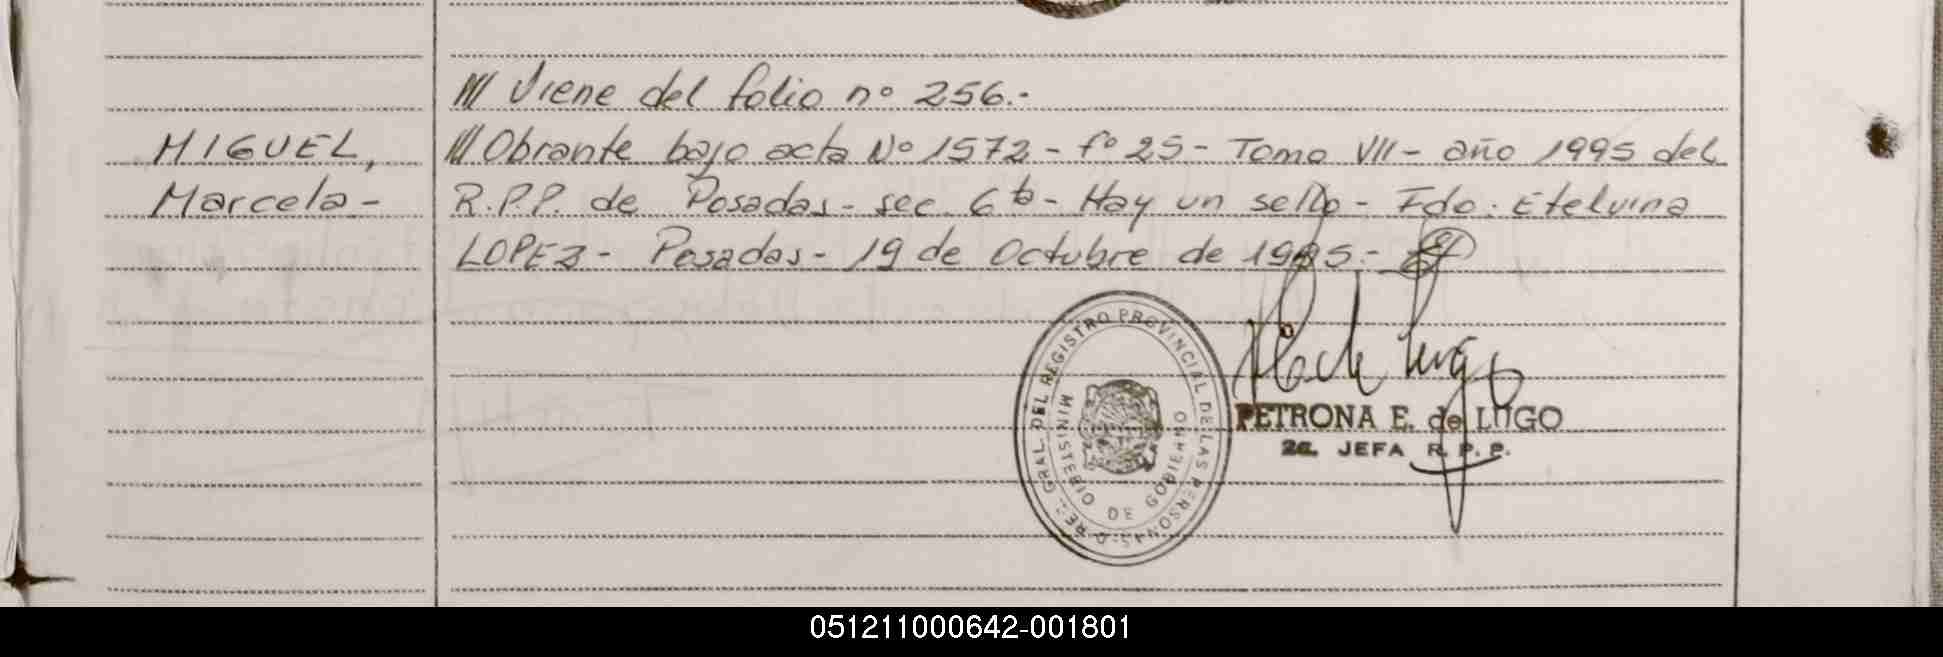 /// Viene del folio nº 256.-
MIGUEL,
Marcela -
/// Obrante bajo acta Nº 1572 - fº 25 - Tomo VII - año 1995 del
R.P.P. de Posadas - sec. 6ta - Hay un sello - Fdo: Etelvina
LOPEZ - Posadas - 19 de Octubre de 1995.-
DEL REGISTRO PROVINCIAL DE LAS PERSONAS
MINISTERIO DE GOBIERNO
PETRONA E. de LUGO
2a. JEFA R.P.P.
051211000642-001801